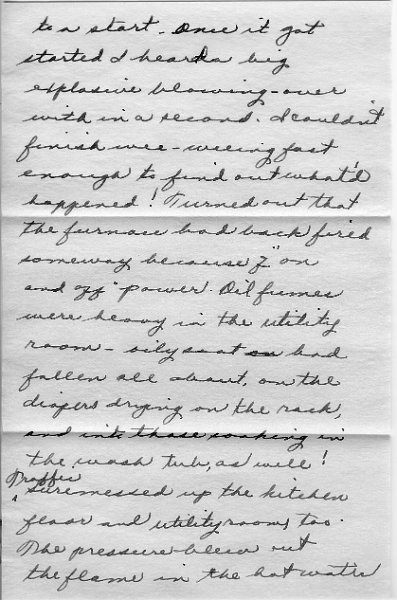 to a start. Once it got
started I heard a big
explosive blowing - over
with in a second. I couldn't
finish wee-weeing fast
enough to find out what'd
happened! Turned out that
the furnace had back fired
someway because of "on
and off" power. Oil fumes
were heavy in the utility
room - oily soot had
fallen all about, on the
diapers drying on the rack,
and into those soaking in
the wash tub, as well!
Traffic
sure messed up the kitchen
floor and utility room, too.
The pressure blew out
the flame in the hot water